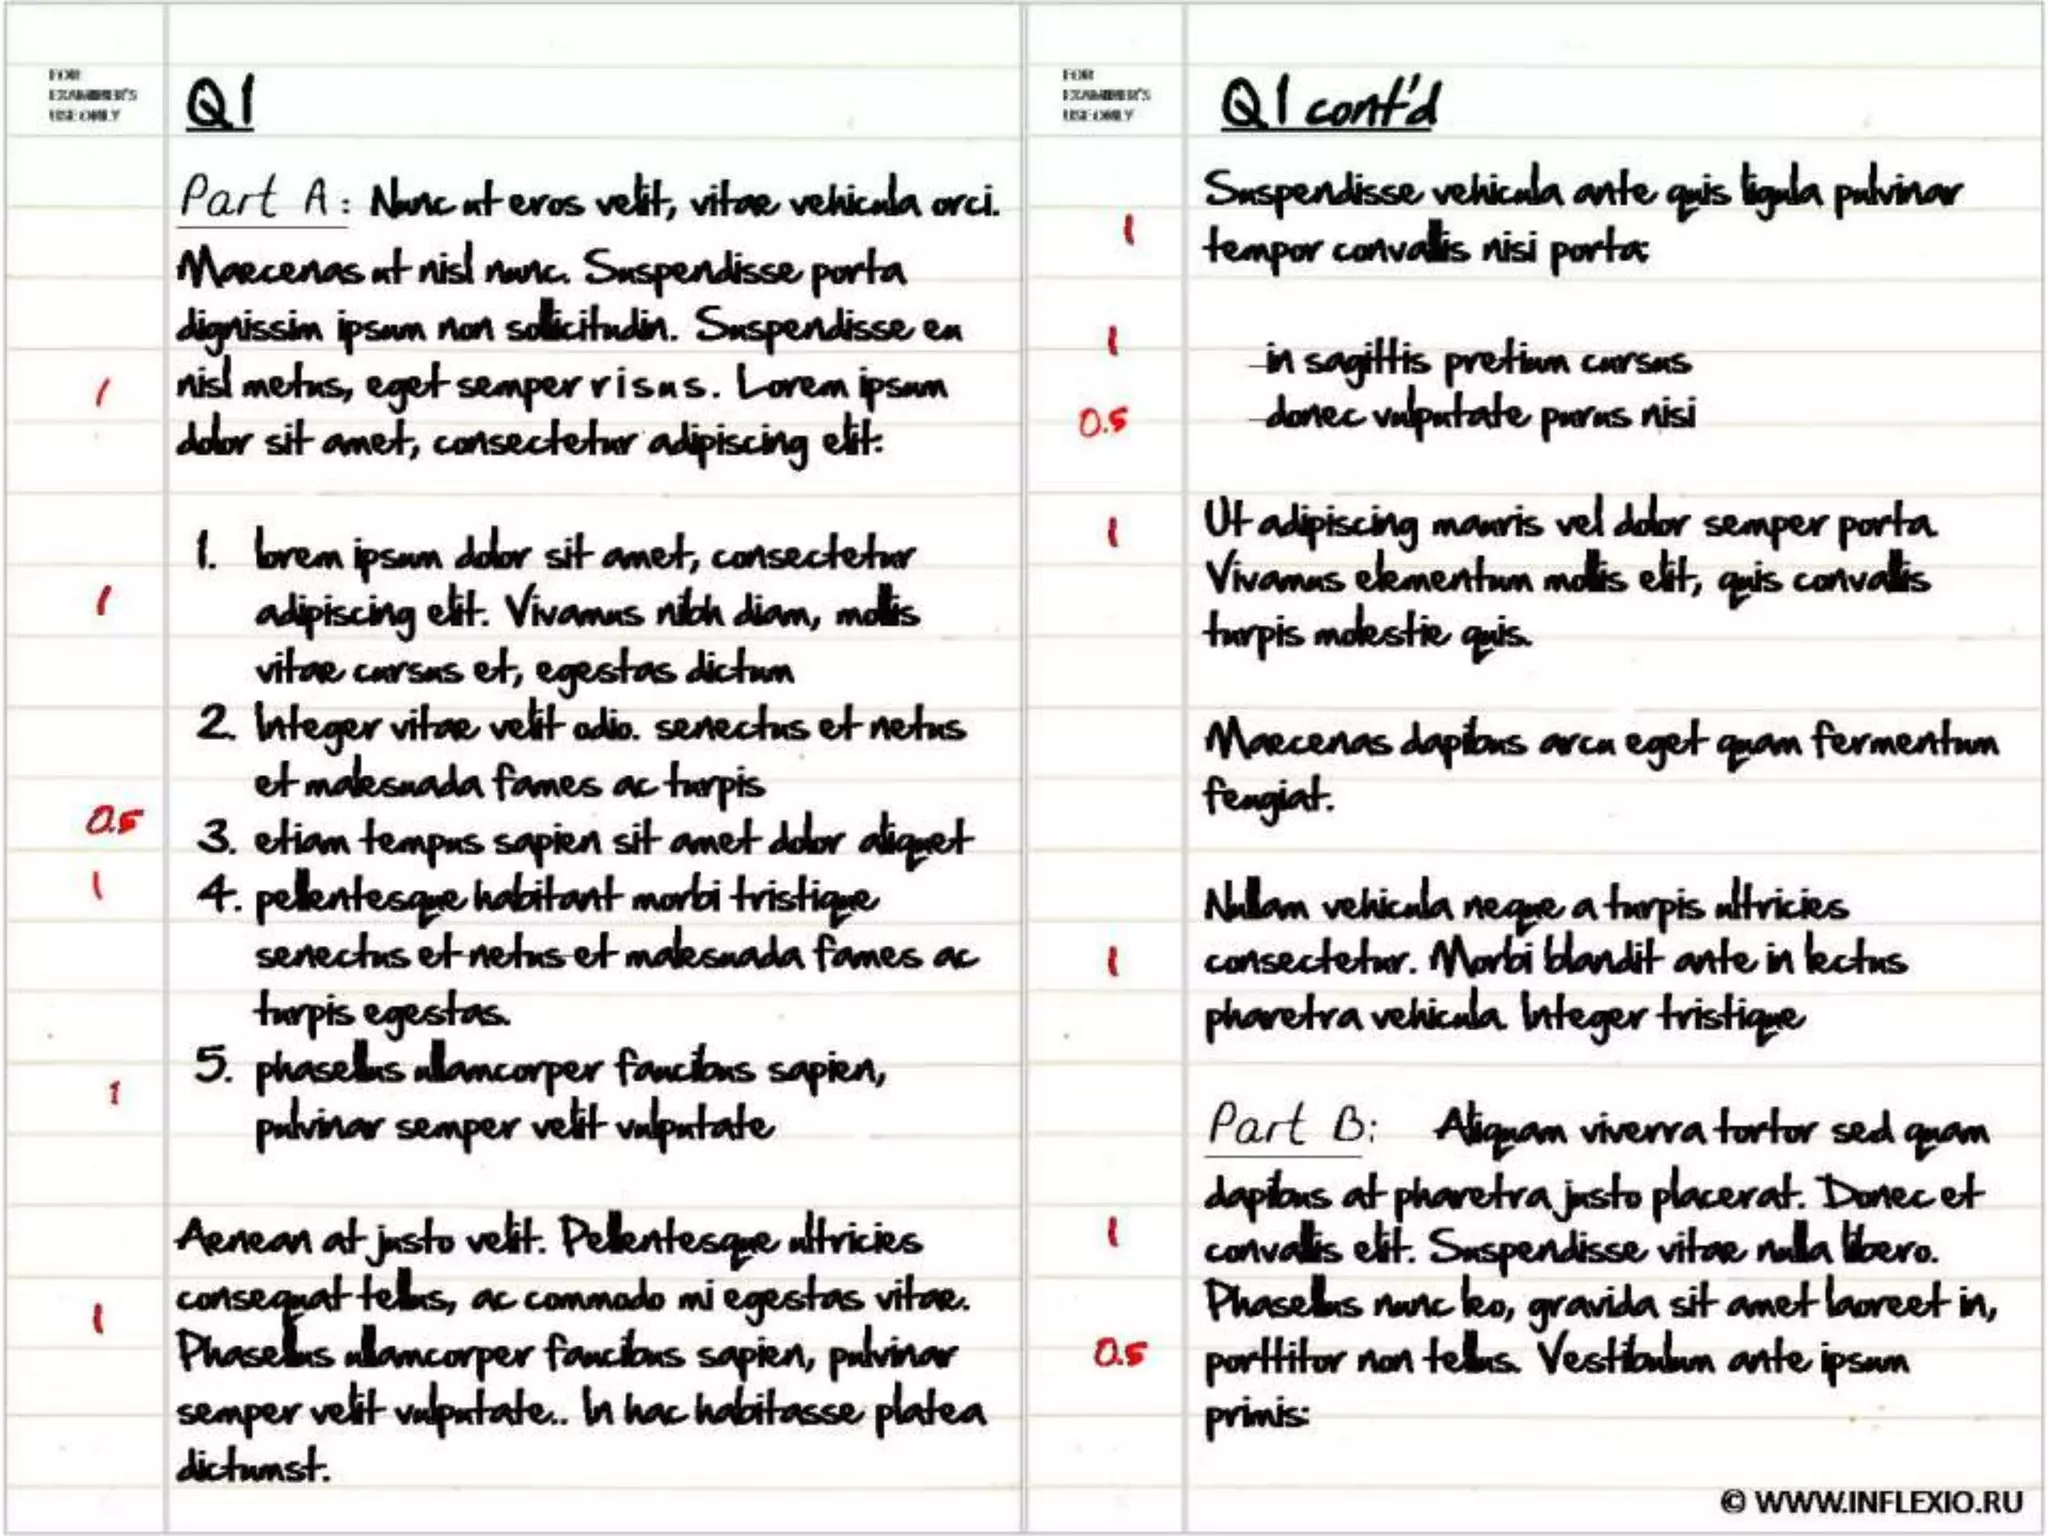 FOR
EXAMINER'S
USE ONLY
Q1
Part A: Nunc ut eros velit, vitae vehicula orci.
Maecenas ut nisl nunc. Suspendisse porta
dignissim ipsum non sollicitudin. Suspendisse eu
1 nisl metus, eget semper risus. Lorem ipsum
dolor sit amet, consectetur adipiscing elit:
1. lorem ipsum dolor sit amet, consectetur
1 adipiscing elit. Vivamus nibh diam, mollis
vitae cursus et, egestas dictum
2. Integer vitae velit odio. senectus et netus
et malesuada fames ac turpis
0.5 3. etiam tempus sapien sit amet dolor aliquet
1 4. pellentesque habitant morbi tristique
senectus et netus et malesuada fames ac
turpis egestas.
5. phasellus ullamcorper faucibus sapien,
1 pulvinar semper velit vulputate
Aenean at justo velit. Pellentesque ultricies
consequat tellus, ac commodo mi egestas vitae.
1 Phasellus ullamcorper faucibus sapien, pulvinar
semper velit vulputate.. In hac habitasse platea
dictumst.
FOR
EXAMINER'S
USE ONLY
Q1 cont'd
Suspendisse vehicula ante quis ligula pulvinar
1 tempor convallis nisi porta:
1 -in sagittis pretium cursus
0.5 -donec vulputate purus nisi
1 Ut adipiscing mauris vel dolor semper porta.
Vivamus elementum mollis elit, quis convallis
turpis molestie quis.
Maecenas dapibus arcu eget quam fermentum
feugiat.
Nullam vehicula neque a turpis ultricies
1 consectetur. Morbi blandit ante in lectus
pharetra vehicula. Integer tristique
Part B: Aliquam viverra tortor sed quam
dapibus at pharetra justo placerat. Donec et
1 convallis elit. Suspendisse vitae nulla libero.
Phasellus nunc leo, gravida sit amet laoreet in,
0.5 porttitor non tellus. Vestibulum ante ipsum
primis:
© WWW.INFLEXIO.RU